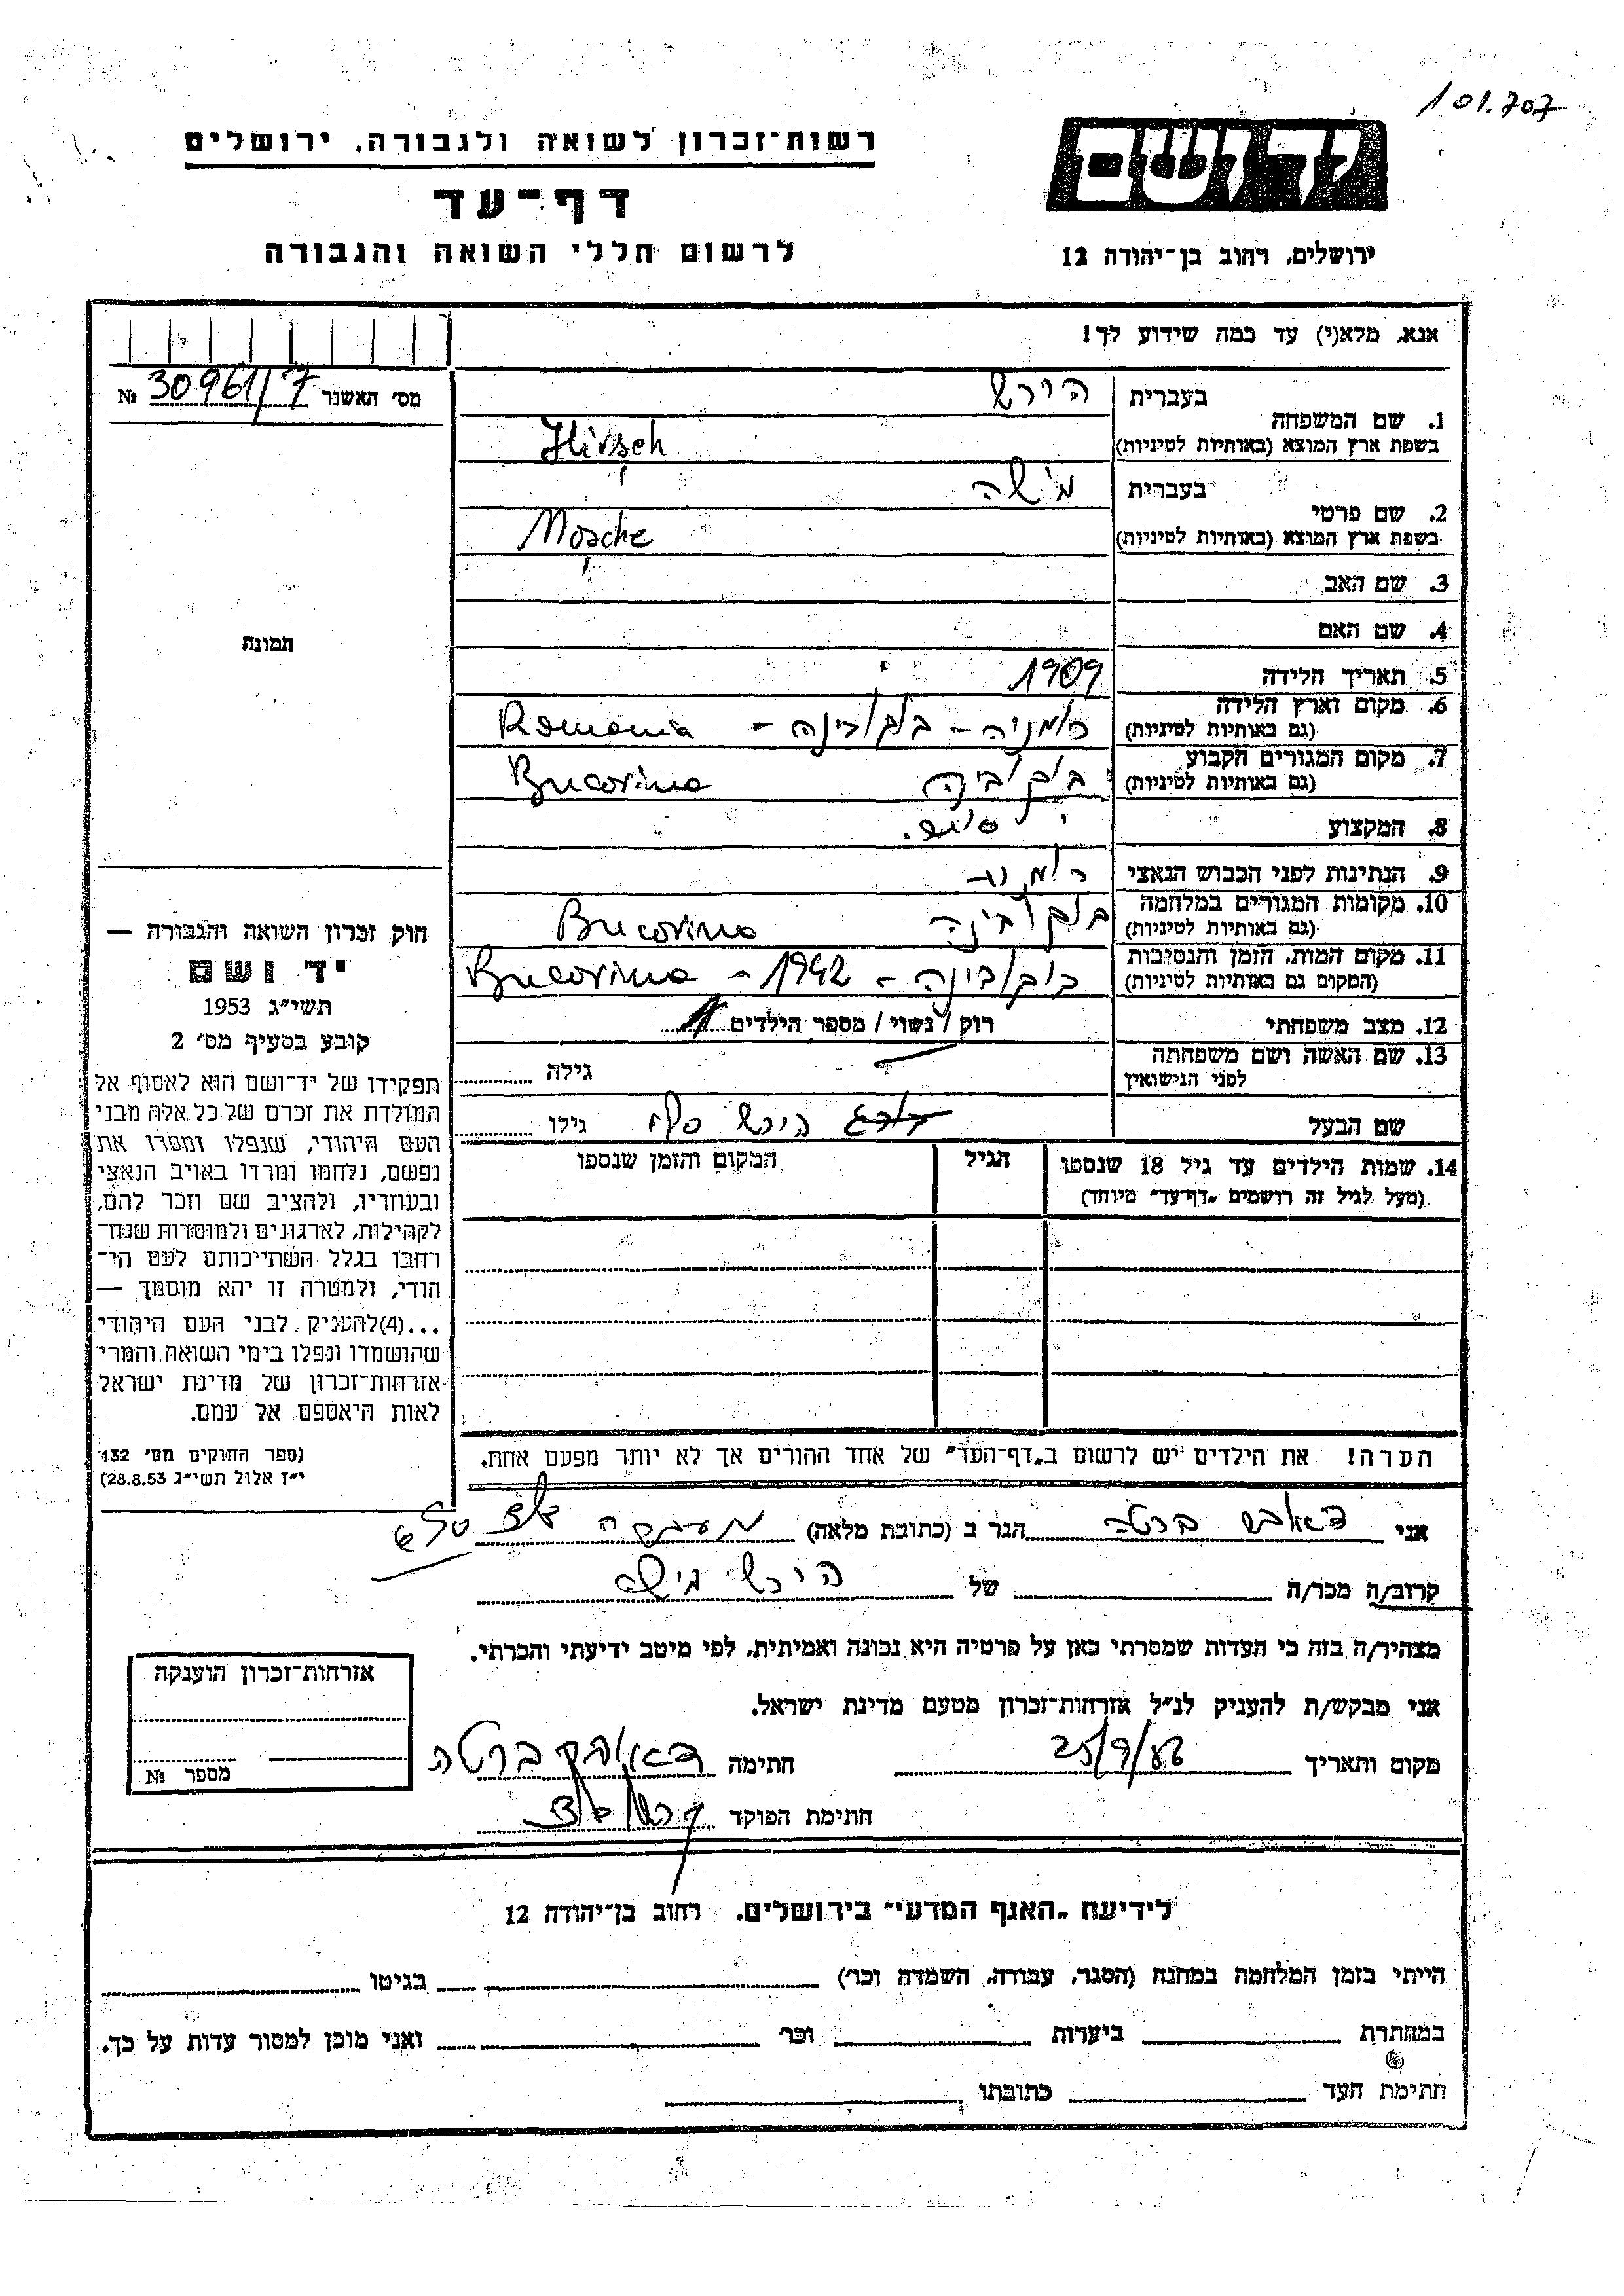 101.707
רשות־זכרון לשואה ולגבורה, ירושלים
יד ושם
דף־עד
לרשום חללי השואה והגבורה
ירושלים, רחוב בן־יהודה 12
אנא, מלא(י) עד כמה שידוע לך!
מס׳ האשנר 30961/7 №
תמונה
1. שם המשפחה
בעברית הירש
בשפת ארץ המוצא (באותיות לטיניות) Hirsch
2. שם פרטי
בעברית מישה
בשפת ארץ המוצא (באותיות לטיניות) Mosche
3. שם האב
4. שם האם
5. תאריך הלידה 1909
6. מקום וארץ הלידה
(גם באותיות לטיניות) רומניה - בוקובינה - Romania
7. מקום המגורים הקבוע
(גם באותיות לטיניות) בוקובינה Bucovina
8. המקצוע
9. הנתינות לפני הכבוש הנאצי
10. מקומות המגורים במלחמה
(גם באותיות לטיניות) בוקובינה Bucovina
11. מקום המות, הזמן והנסיבות
(המקום גם באותיות לטיניות) בוקובינה - 1942 - Bucovina
12. מצב משפחתי רוק / נשוי / מספר הילדים 1
13. שם האשה ושם משפחתה
לפני הנישואין גילה
שם הבעל הירש גילו
14. שמות הילדים עד גיל 18 שנספו הגיל המקום והזמן שנספו
(מעל לגיל זה רושמים „דף־עד״ מיוחד)
הערה! את הילדים יש לרשום ב„דף־העד״ של אחד ההורים אך לא יותר מפעם אחת.
חוק זכרון השואה והגבורה —
יד ושם
תשי״ג 1953
קובע בסעיף מס׳ 2
תפקידו של יד־ושם הוא לאסוף אל
המולדת את זכרם של כל אלה מבני
העם היהודי, שנפלו ומסרו את
נפשם, נלחמו ומרדו באויב הנאצי
ובעוזריו, ולהציב שם וזכר להם,
לקהילות, לארגונים ולמוסדות שנח־
רחבו בגלל השתייכותם לעם הי־
הודי, ולמטרה זו יהא מוסמך —
...(4) להעניק לבני העם היהודי
שהושמדו ונפלו בימי השואה והמרי
אזרחות־זכרון של מדינת ישראל
לאות היאספם אל עמם.
(ספר החוקים מס׳ 132
י״ז אלול תשי״ג 28.8.53)
אני ברטה הגר ב (כתובת מלאה)
קרוב/ה מכר/ה של הירש מישה
מצהיר/ה בזה כי העדות שמסרתי כאן על פרטיה היא נכונה ואמיתית, לפי מיטב ידיעתי והכרתי.
אני מבקש/ת להעניק לנ״ל אזרחות־זכרון מטעם מדינת ישראל.
מקום ותאריך חתימה ברטה
חתימת הפוקד
אזרחות־זכרון הוענקה
מספר №
לידיעת „האגף המדעי״ בירושלים, רחוב בן־יהודה 12
הייתי בזמן המלחמה במחנה (הסגר, עבודה, השמדה וכו׳) בגיטו
במחתרת ביערות וכו׳ ואני מוכן למסור עדות על כך.
חתימת העד כתובתו